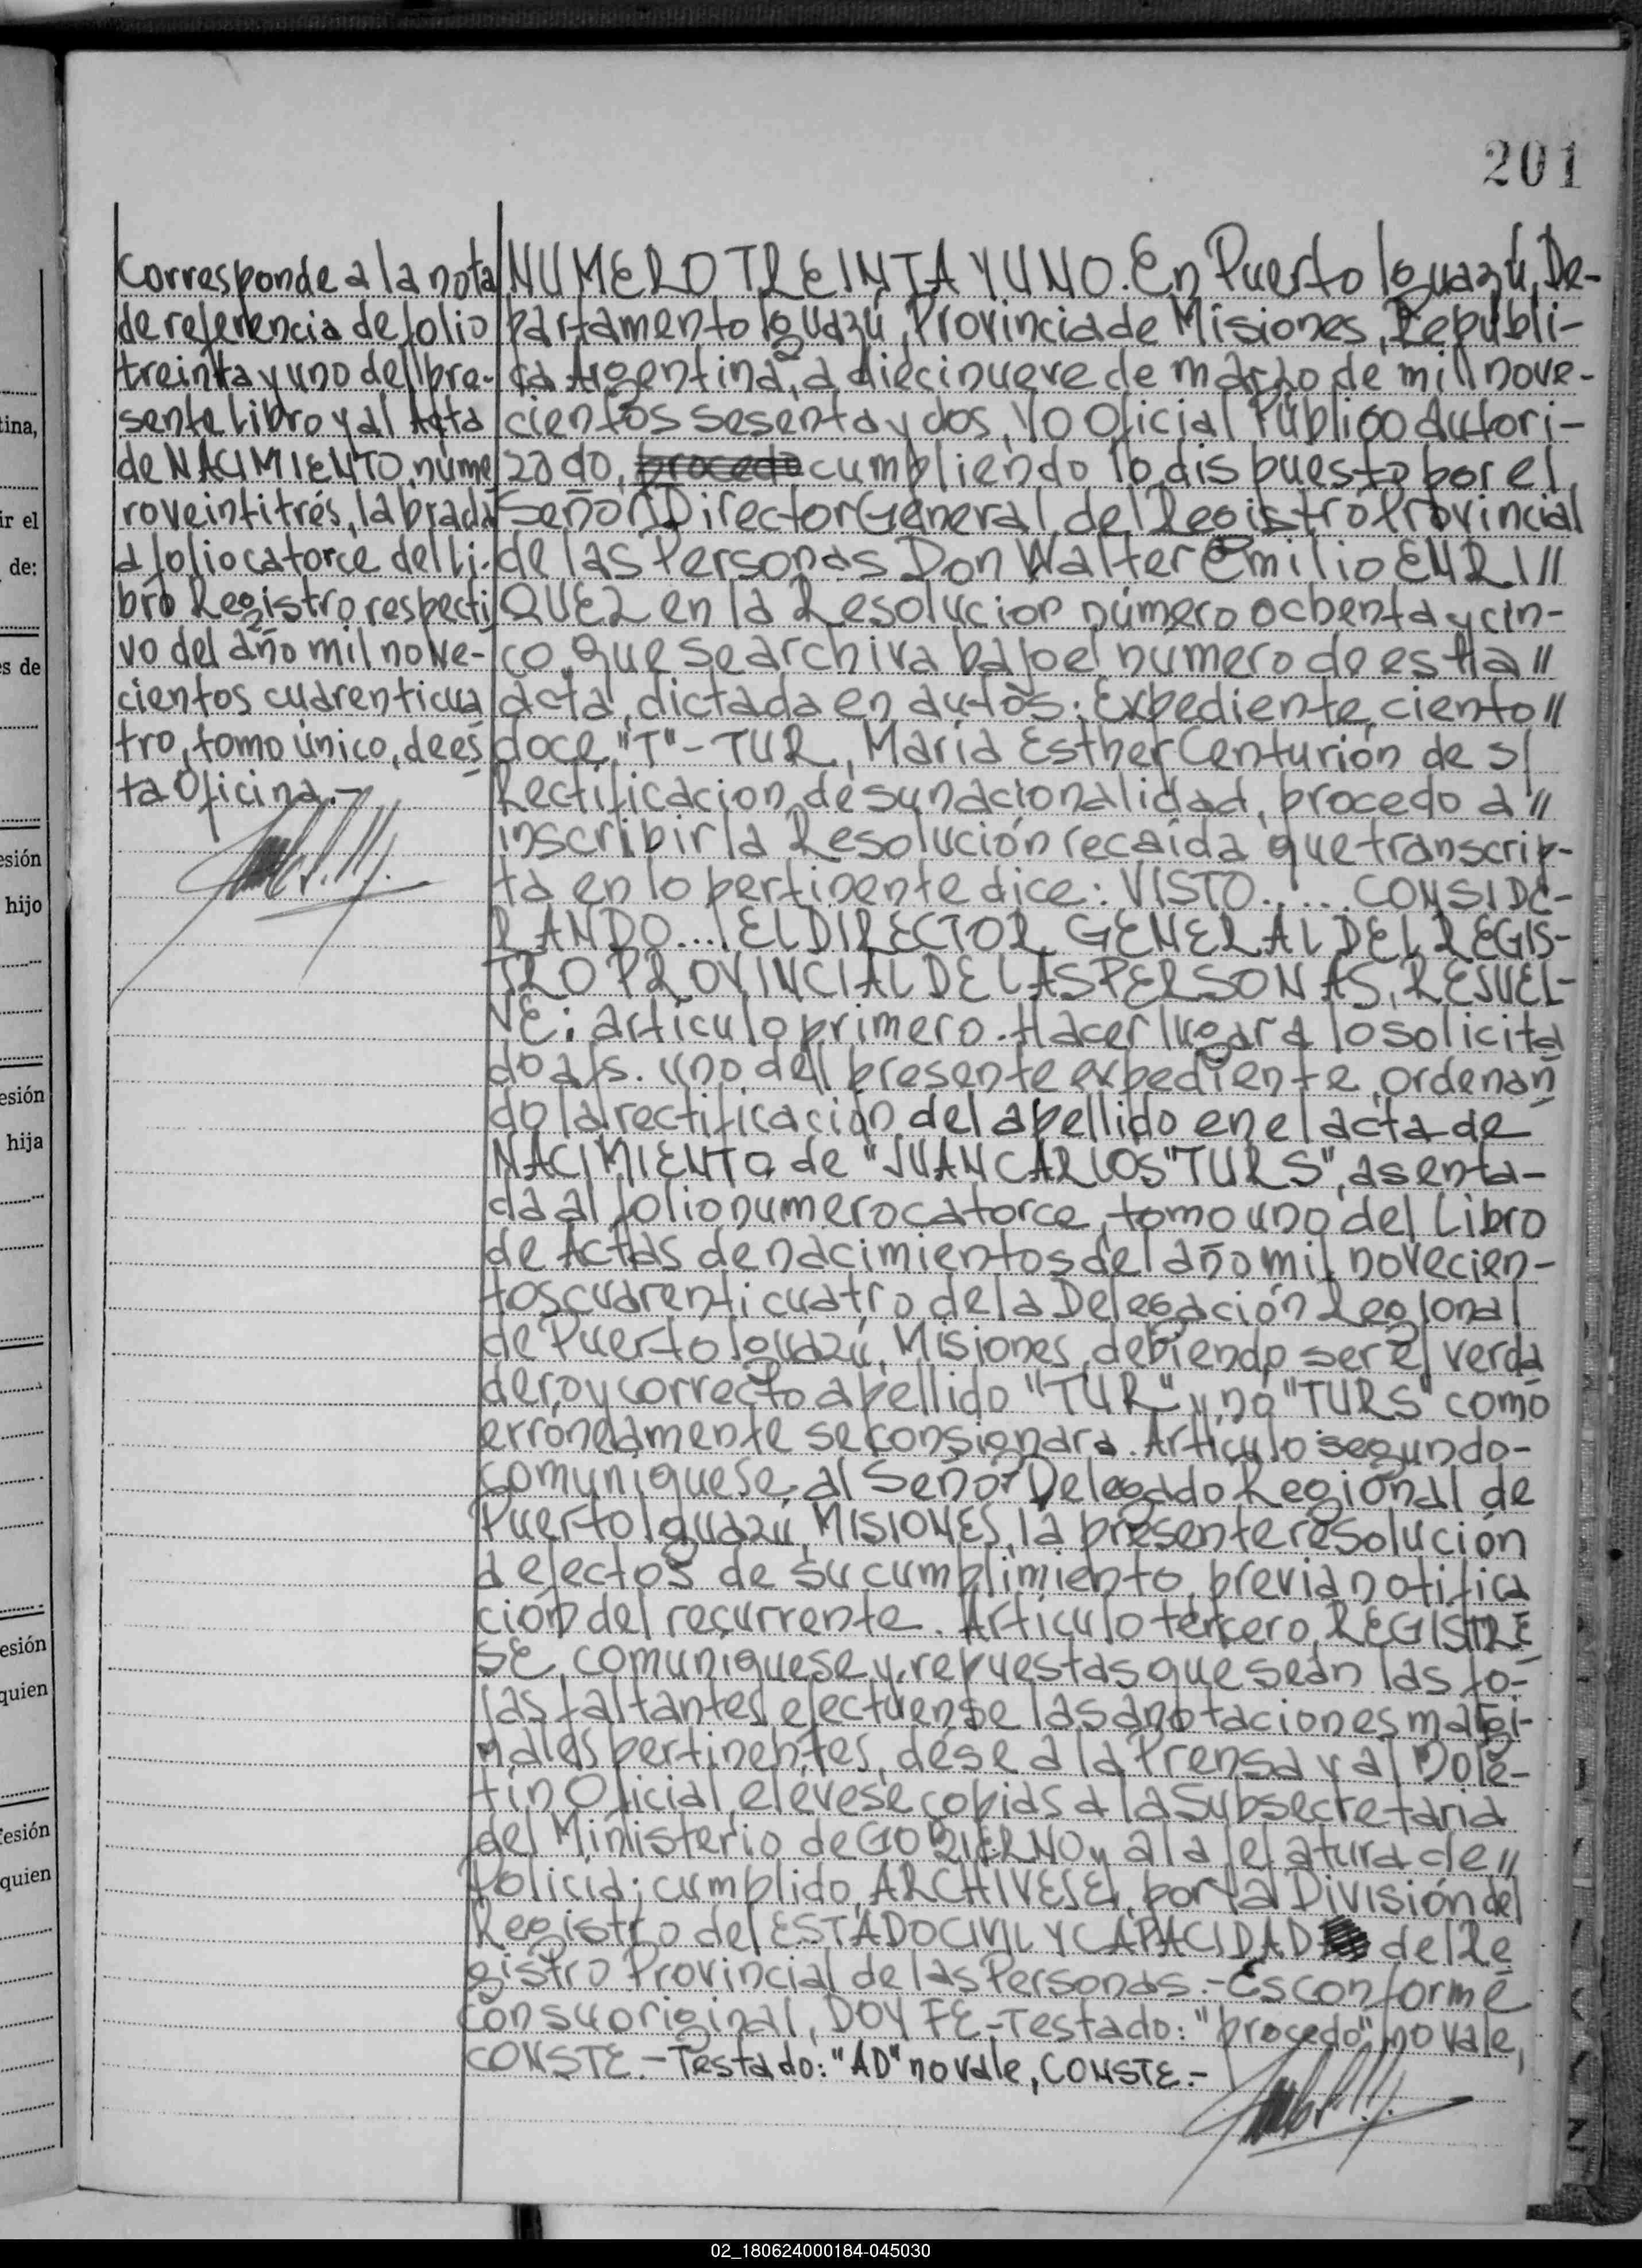 201
Corresponde a la nota
de referencia de folio
treinta y uno del pre-
sente Libro y al Acta
de NACIMIENTO, núme
ro veintitrés, labrada
a folio catorce del Li-
bro Registro respecti
vo del año mil nove-
cientos cuarenticua
tro, tomo único, de es
ta Oficina.-
NUMERO TREINTA Y UNO. En Puerto Iguazú, De-
partamento Iguazú, Provincia de Misiones, Republi-
ca Argentina, a diecinueve de marzo de mil nove-
cientos sesenta y dos, Yo Oficial Público Autori-
zado, procedo cumpliendo lo dispuesto por el
Señor Director General del Registro Provincial
de las Personas Don Walter Emilio ENRI//
QUEZ en la Resolucion número ochenta y cin-
co, que se archiva bajo el numero de esta //
acta, dictada en autos: Expediente, ciento //
doce "T" - TUR, Maria Esther Centurión de s/
Rectificacion de su nacionalidad, procedo a //
inscribir la Resolución recaida que transcrip-
ta en lo pertinente dice: VISTO..... CONSIDE-
RANDO.... EL DIRECTOR GENERAL DEL REGIS-
TRO PROVINCIAL DE LAS PERSONAS, RESUEL-
VE: articulo primero. Hacer lugar a lo solicita
do a fs. uno del presente expediente, ordenan
do la rectificación del apellido en el acta de
NACIMIENTO de "JUAN CARLOS "TURS", asenta-
da al folio numero catorce, tomo uno del Libro
de Actas de nacimientos del año mil novecien-
tos cuarenti cuatro de la Delegación Regional
de Puerto Iguazú, Misiones, debiendo ser el verda
dero y correcto apellido "TUR" y no "TURS" como
erróneamente se consignara. Articulo segundo-
comuniquese, al Señor Delegado Regional de
Puerto Iguazú, MISIONES, la presente resolución
a efectos de su cumplimiento, previa notifica
ción del recurrente. Articulo tercero, REGISTRE
SE, comuniquese y repuestas que sean las fo-
jas faltantes, efectuense las anotaciones margi-
nales pertinentes, dése a la Prensa y al Bole-
tin Oficial, elévese copias a la Subsecretaria
del Ministerio de GOBIERNO y a la Jefatura de //
Policia; cumplido, ARCHIVESE, por la División del
Registro del ESTADO CIVIL Y CAPACIDAD del Re
gistro Provincial de las Personas.- Es conforme
con su original, DOY FE.- Testado: "procedo", no vale,
CONSTE.- Testado: "AD" no vale, CONSTE.-
tina,
ir el
de:
s de
esión
hijo
esión
hija
esión
quien
fesión
quien
02_180624000184-045030